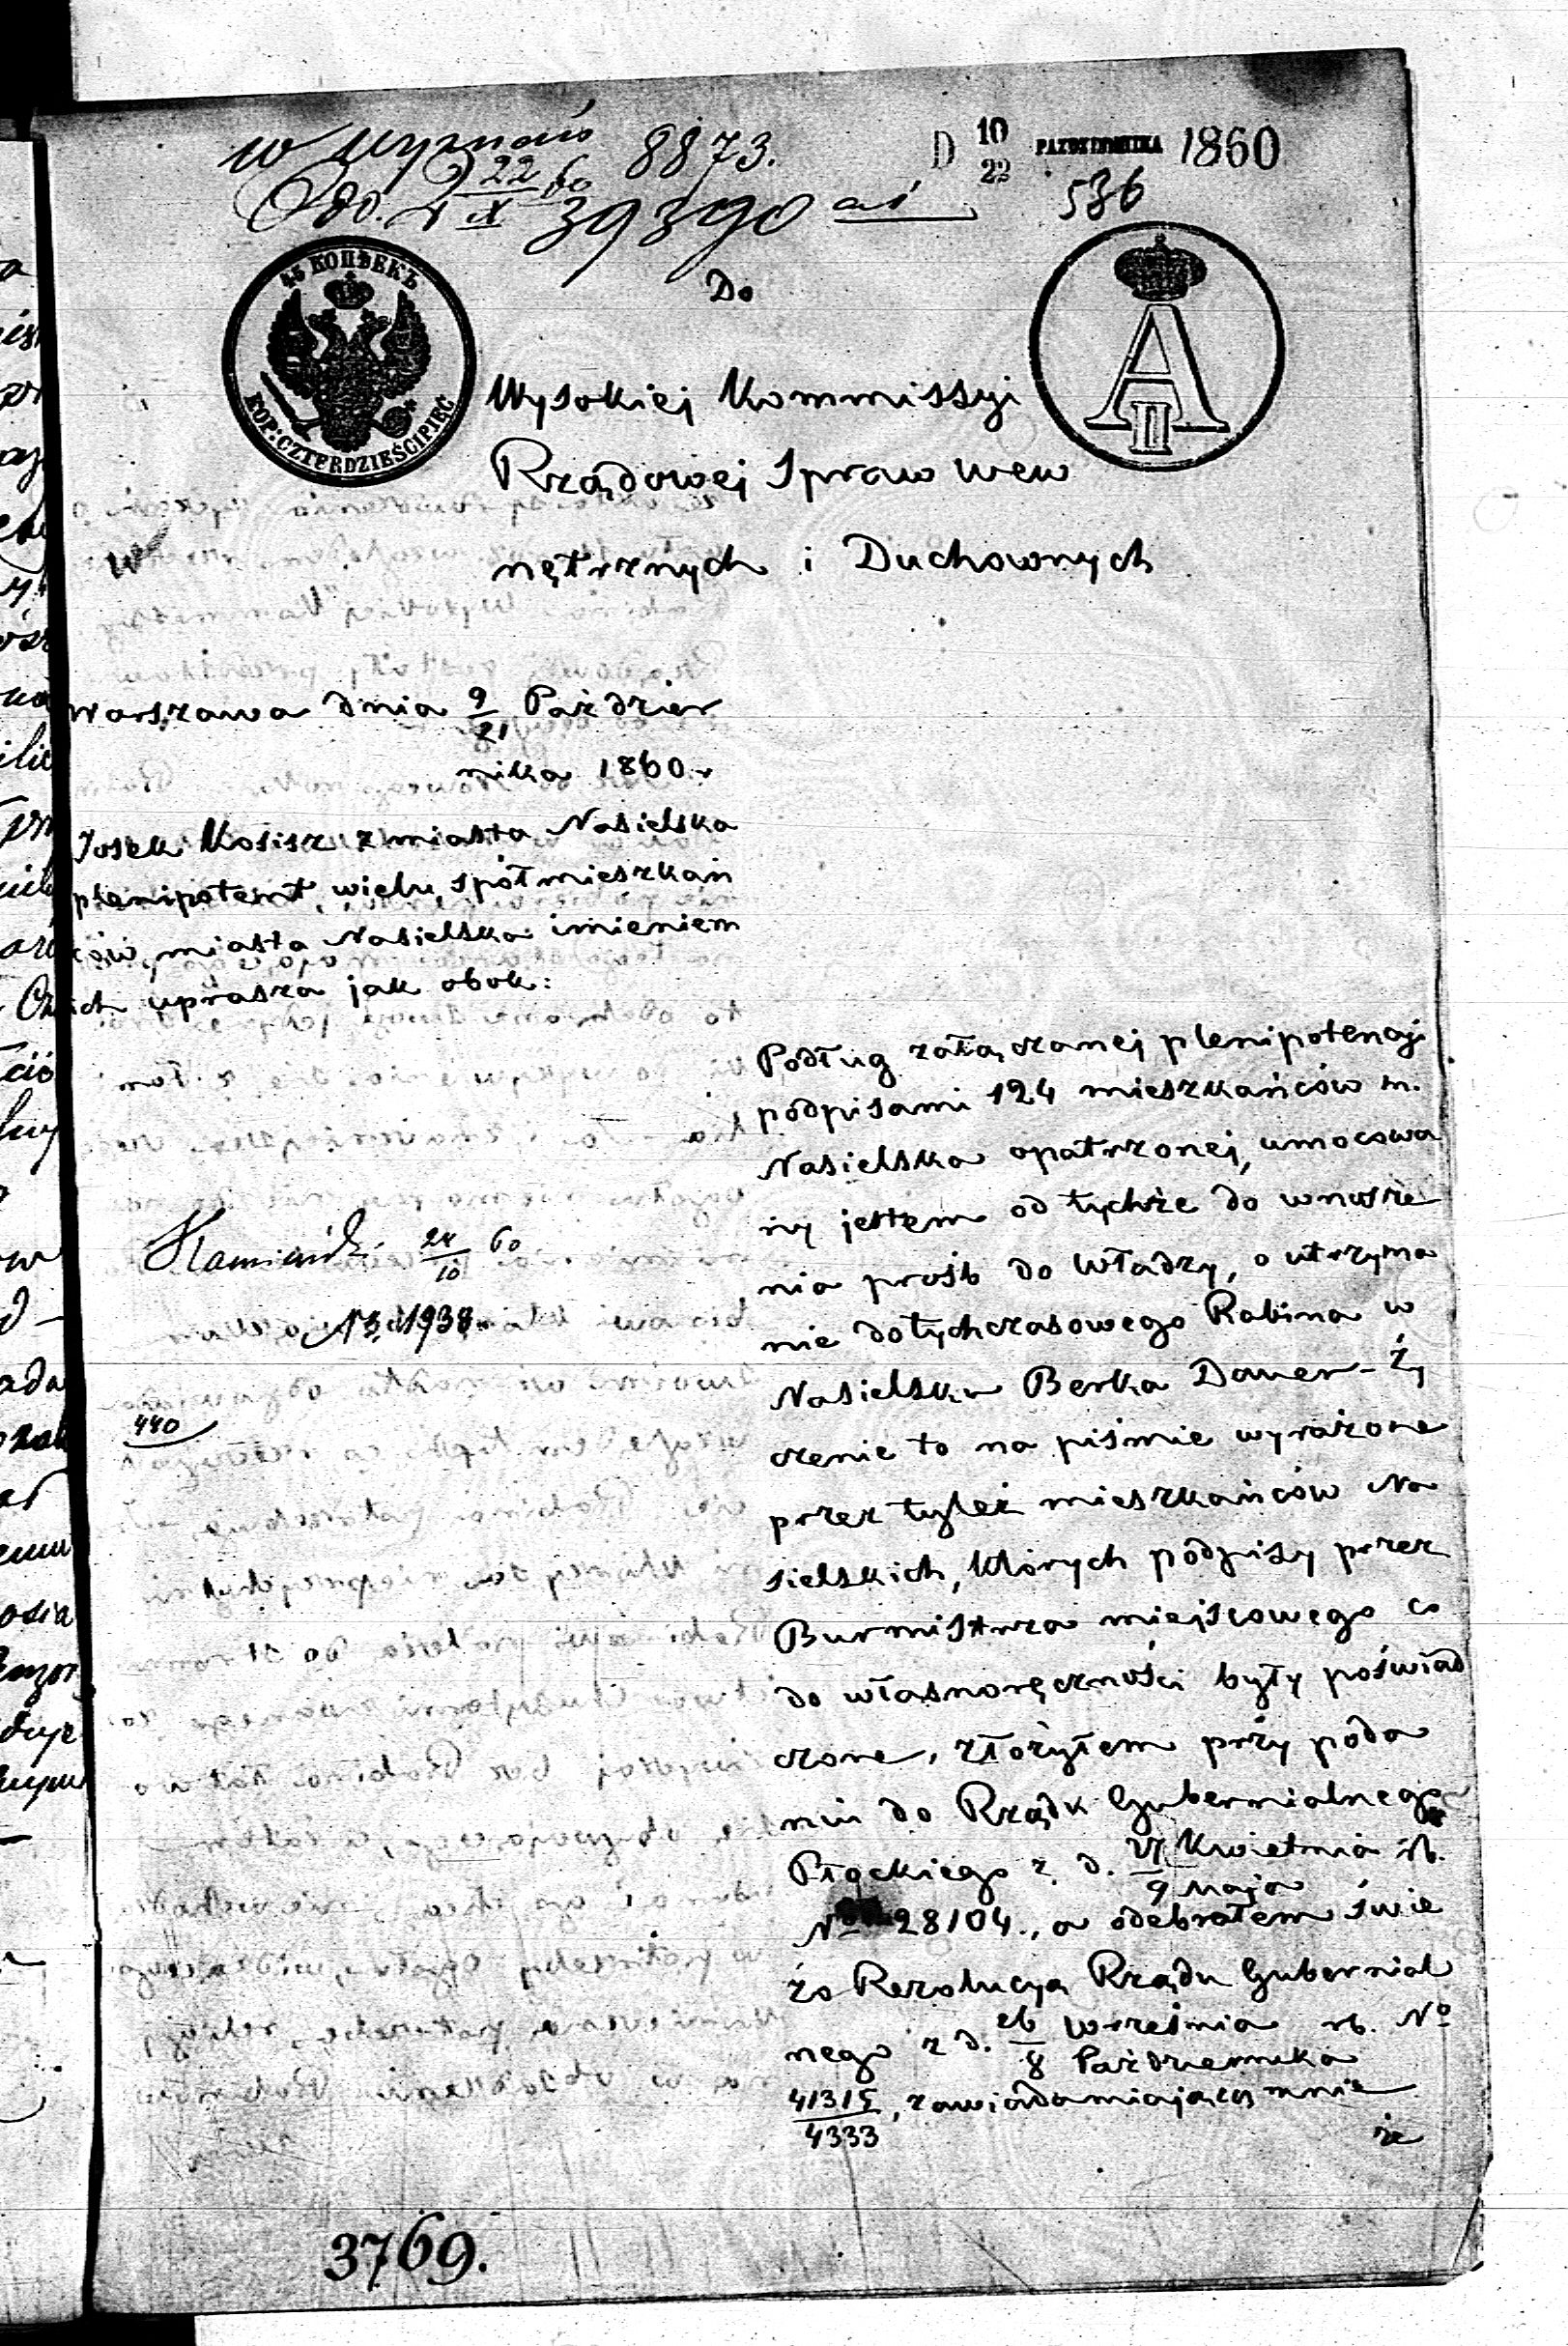 w wyznań 8873.
D 10/22 PAZDZIERNIKA 1860
Odd. 22/X 60 39390
536
45 КОПѢЕКЪ
KOP: CZTERDZIEŚCI PIĘĆ
A II
Do
Wysokiej Kommissyi
Rządowej Spraw Wew
nętrznych i Duchownych
Warszawa dnia 9/21 Paździer
nika 1860.
Josek Kosisz z miasta Nasielska
plenipotent, wielu spółmieszkań
ców, miasta Nasielska imieniem
ich uprasza jak obok:
Podług załączonej plenipotencyi
podpisami 124 mieszkańców m.
Nasielska opatrzonej, umocowa
ny jestem od tychże do wnosze
nia prośb do Władzy, o utrzyma
nie dotychczasowego Rabina w
Nasielsku Berka Dauer – Ży
czenie to na piśmie wyrażone
przez tyleż mieszkańców Na
sielskich, których podpisy przez
Burmistrza miejscowego co
do własnoręczności były poświad
czone, złożyłem przy poda
niu do Rządu Gubernialnego
Płockiego z d. 27 Kwietnia / 9 Maja rb.
No 28104., a odebrałem świe
żo Rezolucyą Rządu Gubernial
nego z d. 26 Września / 8 Października rb. No
41315/4333, zawiadamiającą mnie
że
24/10 60
N 3,1938.
440
3769.